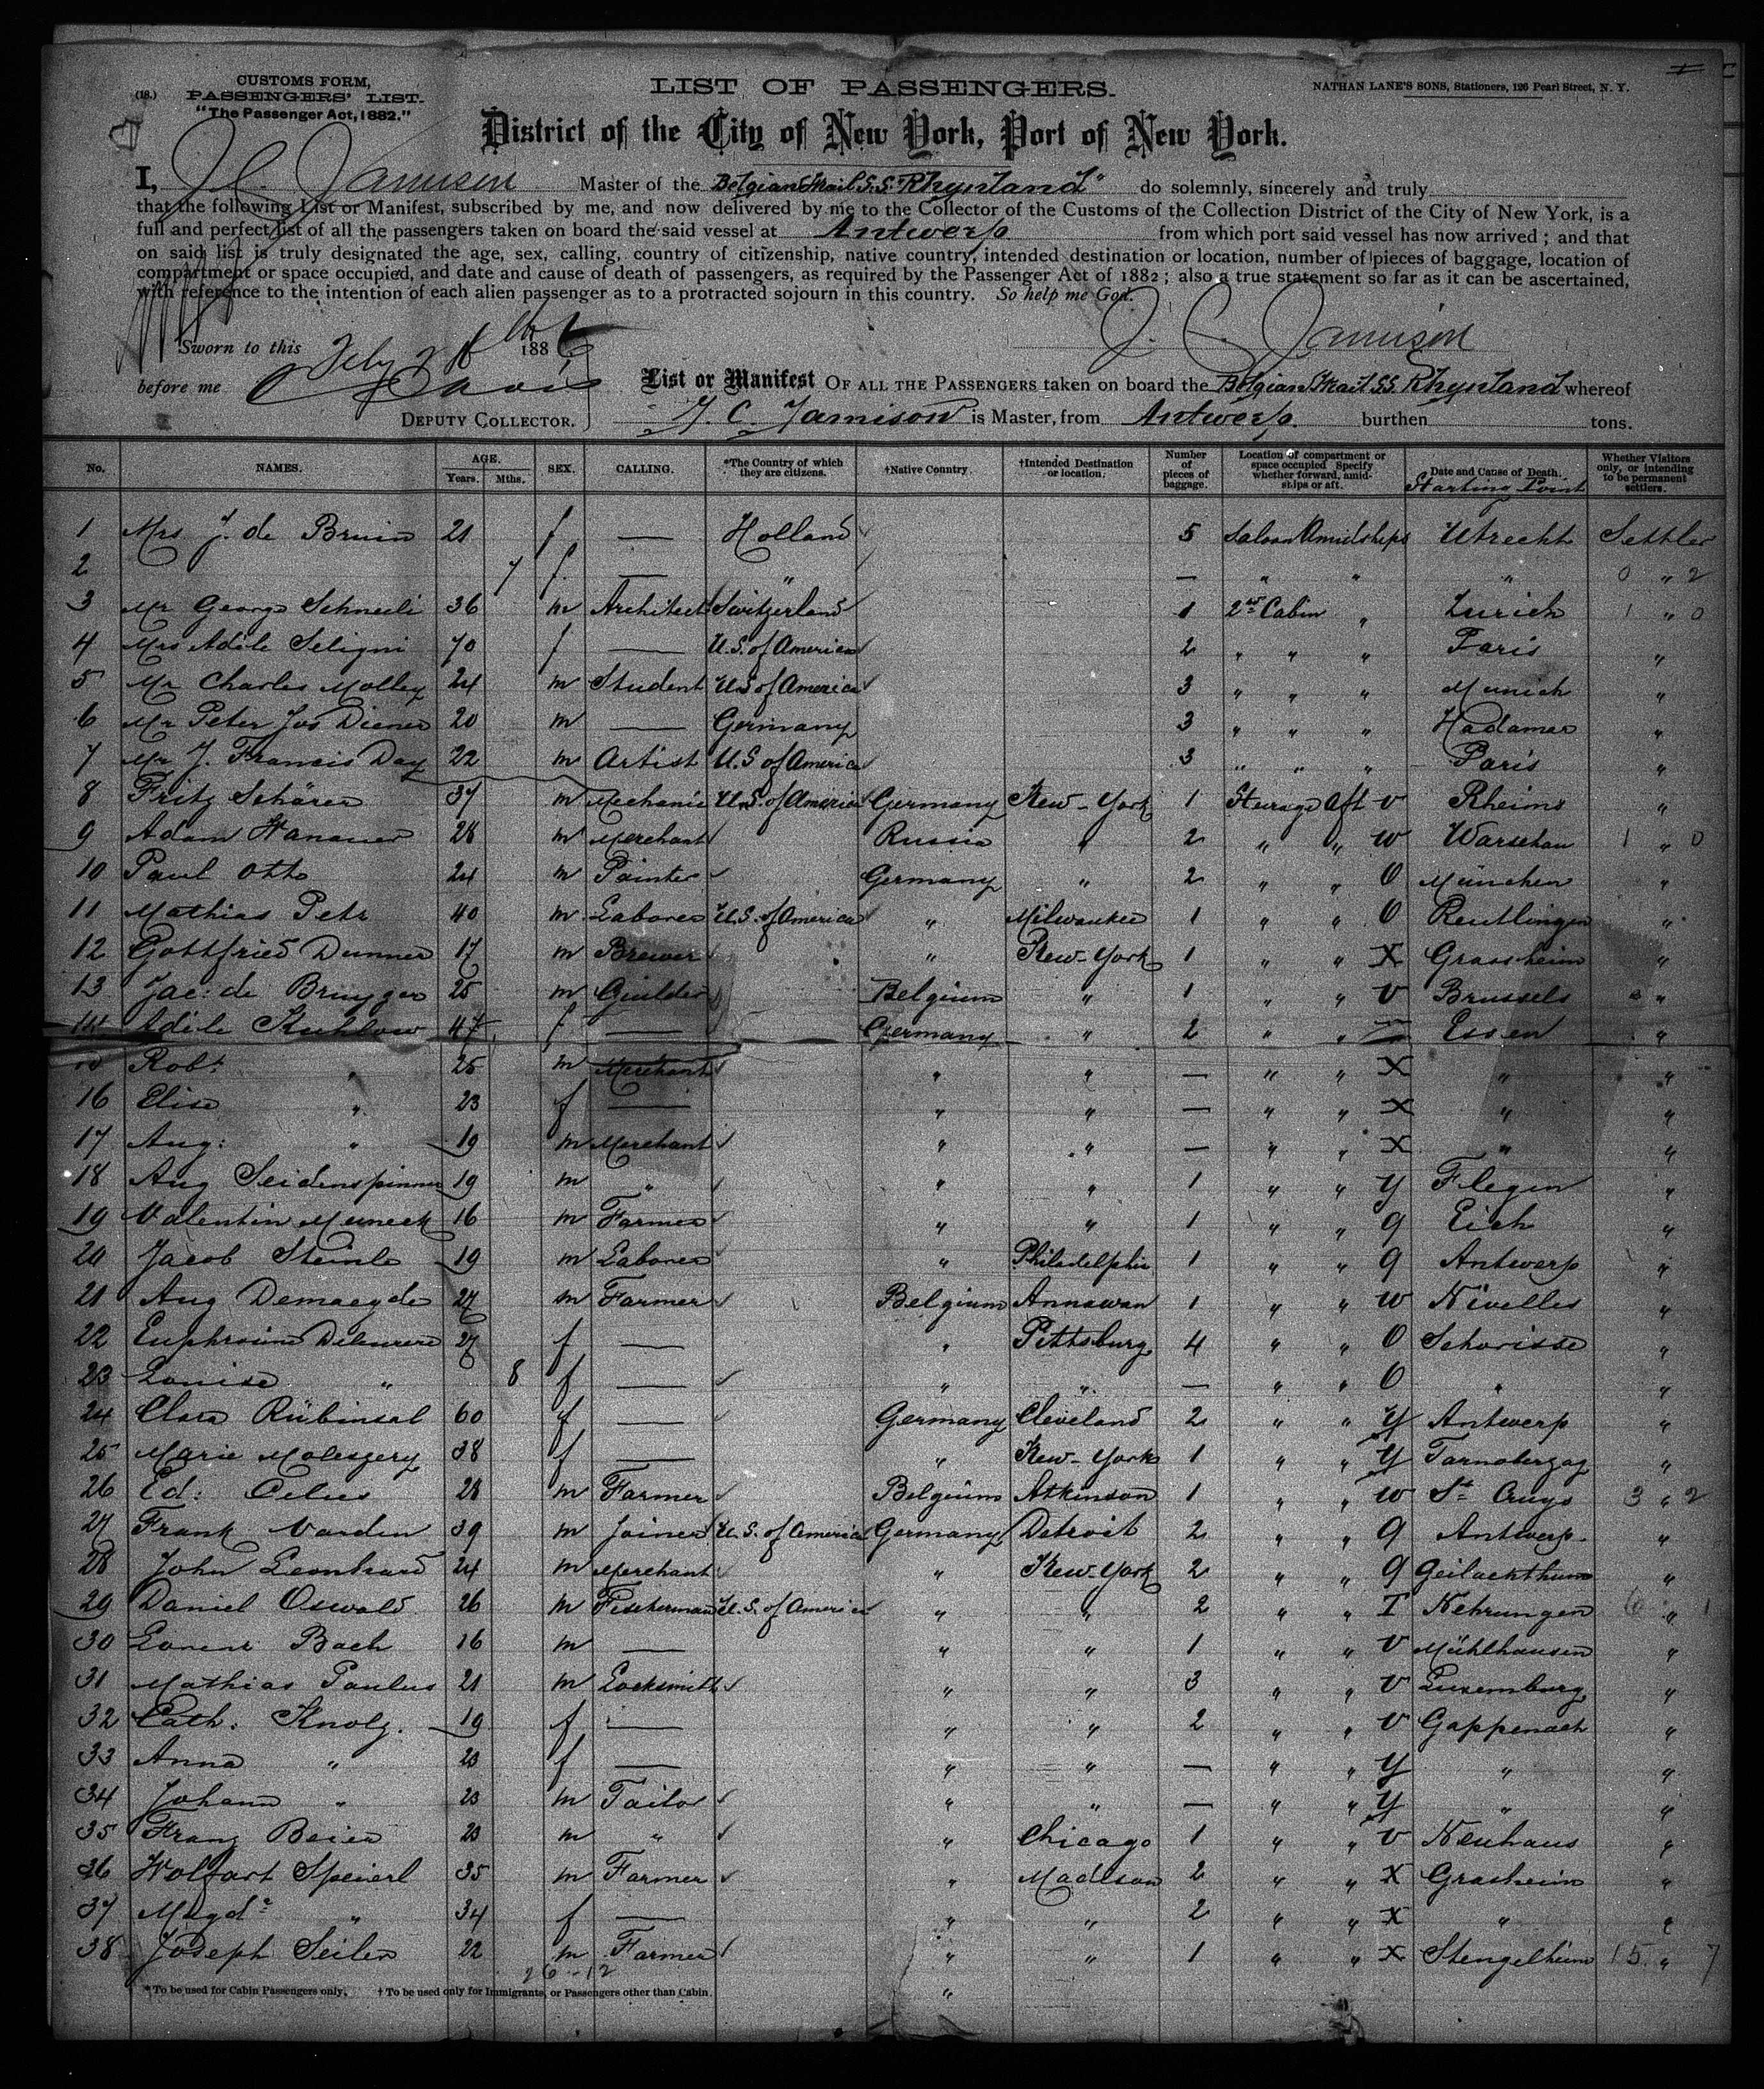 (18.)
CUSTOMS FORM,
PASSENGERS' LIST.
"The Passenger Act, 1882."
LIST OF PASSENGERS.
NATHAN LANE'S SONS, Stationers, 126 Pearl Street, N. Y.
District of the City of New York, Port of New York.
I, J C. Jamison Master of the Belgian Mail S.S. "Rhynland" do solemnly, sincerely and truly
that the following List or Manifest, subscribed by me, and now delivered by me to the Collector of the Customs of the Collection District of the City of New York, is a
full and perfect list of all the passengers taken on board the said vessel at Antwerp from which port said vessel has now arrived; and that
on said list is truly designated the age, sex, calling, country of citizenship, native country, intended destination or location, number of pieces of baggage, location of
compartment or space occupied, and date and cause of death of passengers, as required by the Passenger Act of 1882; also a true statement so far as it can be ascertained,
with reference to the intention of each alien passenger as to a protracted sojourn in this country. So help me God.
J. C. Jamison
Sworn to this Feby 188
before me
DEPUTY COLLECTOR.
List or Manifest OF ALL THE PASSENGERS taken on board the Belgian Mail SS. Rhynland whereof
J. C. Jamison is Master, from Antwerp. burthen tons.
No. NAMES. AGE. Years. Mths. SEX. CALLING. *The Country of which they are citizens. †Native Country. †Intended Destination or location. Number of pieces of baggage. Location of compartment or space occupied Specify whether forward, amidships or aft. Date and Cause of Death. Starting Point Whether Visitors only, or intending to be permanent settlers.
1 Mrs J. de Bruin 21 f — Holland 5 Saloon Amidships Utrecht Settler
2 7 f. — " — " " " 0 " 2
3 Mr George Schneeli 36 m Architect Switzerland 1 2nd Cabin " Zurich 1 " 0
4 Mrs Adèle Seligni 70 f — U.S. of America 2 " " " Paris "
5 Mr Charles Molley 24 m Student U.S of America 3 " " " Munich "
6 Mr Peter Jos Diener 20 m — Germany 3 " " " Hadamar "
7 Mr J. Francis Day 22 m Artist U.S of America 3 " " " Paris "
8 Fritz Schärer 37 m Mechanic U.S. of America Germany New-York 1 Steerage Aft V Rheims "
9 Adam Hanauer 28 m Merchant Russia " 2 " " W Warschau 1 " 0
10 Paul Otto 24 m Painter Germany " 2 " " O München "
11 Mathias Petr 40 m Laborer U.S. of America " Milwaukee 1 " " O Reutlingen "
12 Gottfried Dunner 17 m Brewer " New-York 1 " " X Graasheim "
13 Jac: de Bruygger 25 m Guilder Belgium " 1 " " V Brussels "
14 Adèle Kuhlow 47 f — Germany " 2 " " — Essen "
Robt " 25 m Merchant " " — " " X " "
16 Elise " 23 f — " " — " " X " "
17 Aug: " 19 m Merchant " " — " " X " "
18 Aug Seidenspinner 19 m " " " 1 " " Y Flegin "
19 Valentin Muneck 16 m Farmer " " 1 " " 9 Eich "
20 Jacob Steinle 19 m Laborer " Philadelphia 1 " " 9 Antwerp "
21 Aug Demaeyde 27 m Farmer Belgium Annawan 1 " " W Nivelles "
22 Euphrosine 27 f — " Pittsburg 4 " " O Schorisse "
23 Louise " 8 f — " " — " " O " "
24 Clara Rübinsal 60 f — Germany Cleveland 2 " " Y Antwerp "
25 Marie Moleszery 38 f — " New-York 1 " " Y "
26 Ed: Celus 28 m Farmer Belgium Atkinson 1 " " W St Cruys 3 " 2
27 Frank Varden 39 m Joiner U.S. of America Germany Detroit 2 " " 9 Antwerp "
28 John Leonhard 24 m Merchant " New-York 2 " " 9 "
29 Daniel Oswald 26 m Fischerman U.S. of America " " 2 " " T Nehrungen 6 " 1
30 Lorenz Bach 16 m — " " 1 " " V Mühlhausen "
31 Mathias Paulus 21 m Locksmith " " 3 " " V Luxemburg "
32 Cath: Knolz. 19 f — " " 2 " " V Gappenach "
33 Anna " 23 f — " " — " " Y " "
34 Johann " 23 m Tailor " " — " " Y " "
35 Franz Beier 23 m " " Chicago 1 " " V Neuhaus "
36 Wolfart Speierl 35 m Farmer " Madison 2 " " X Grasheim "
37 Magd " 34 f — " " 2 " " X " "
38 Joseph Seiler 22 m Farmer " " 1 " " X Stengelheim 15 " 7
26-12
"
*To be used for Cabin Passengers only. †To be used only for Immigrants, or Passengers other than Cabin.